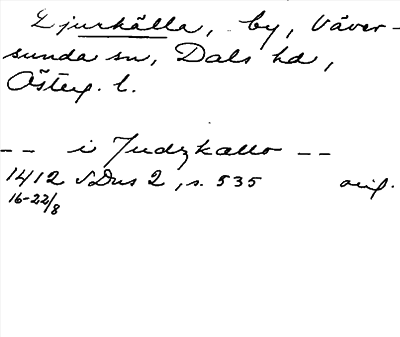 Djurkälla, by, Väver-
sunda sn, Dals hd,
Österg. l.
-- i Judzkallo --
1412 SDns 2, s. 535 orig.
16-22/8